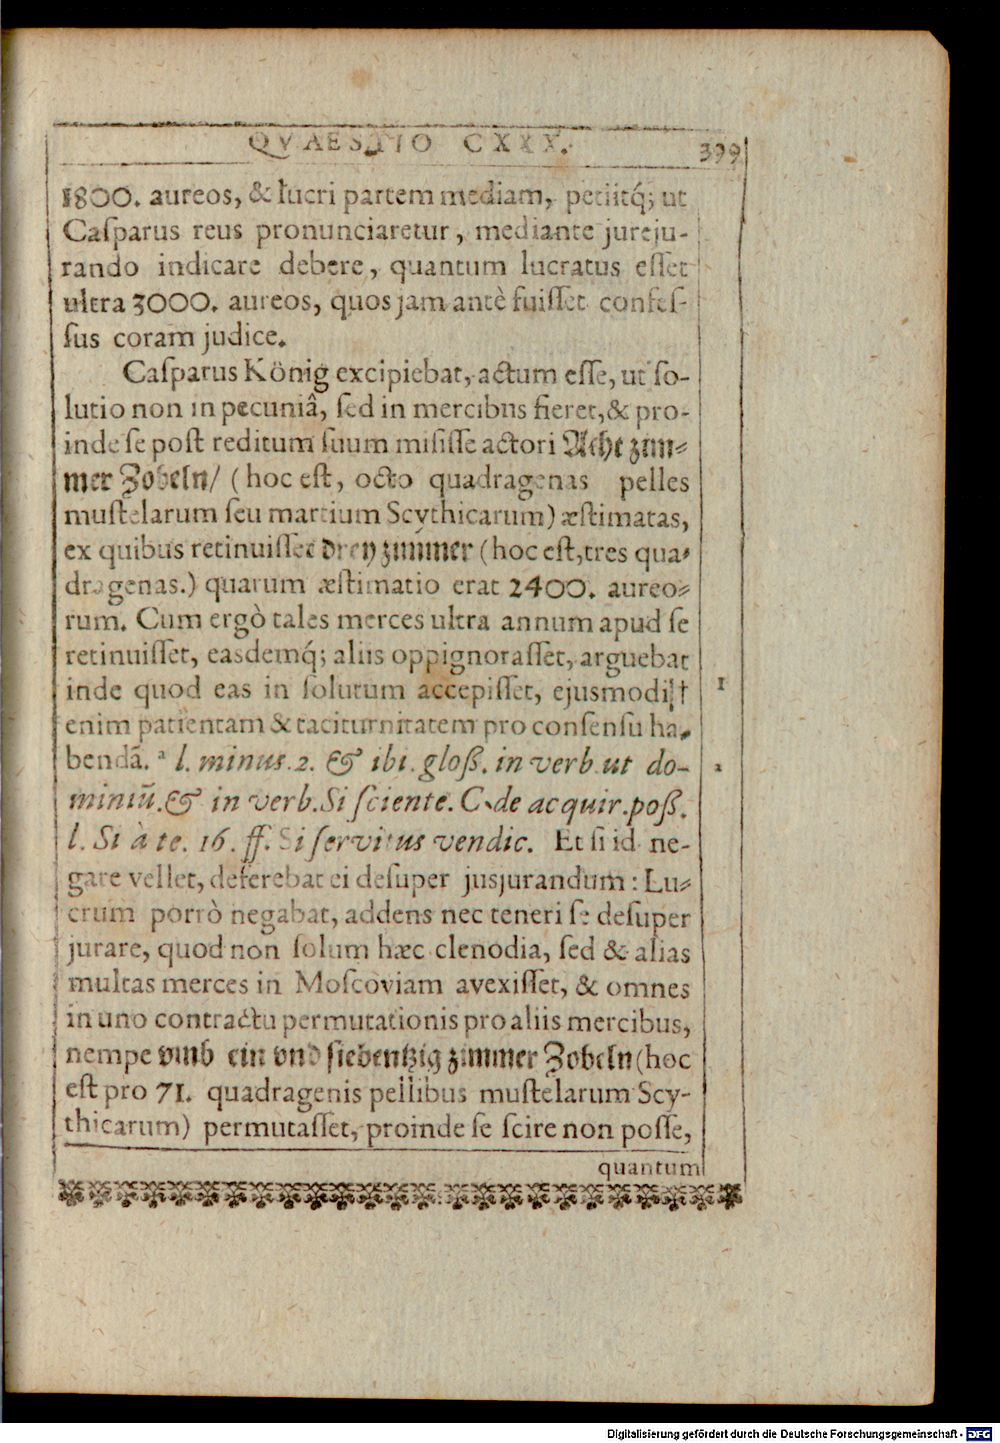 QVAESTIO CXXX. 399
1800. aureos, & lucri partem mediam, petiitq́; ut
Caſparus reus pronunciaretur, mediante jureju-
rando indicare debere, quantum lucratus eſſet
ultra 3000. aureos, quos jam antè fuiſſet confeſ-
ſus coram judice.
Caſparus König excipiebat, actum eſſe, ut ſo-
lutio non in pecuniâ, ſed in mercibus fieret, & pro-
inde ſe poſt reditum ſuum miſiſſe actori Acht zim-
mer Zobeln/ (hoc eſt, octo quadragenas pelles
muſtelarum ſeu martium Scythicarum) æſtimatas,
ex quibus retinuiſſet drey zimmer (hoc eſt, tres qua-
dragenas.) quarum æſtimatio erat 2400. aureo-
rum. Cum ergò tales merces ultra annum apud ſe
retinuiſſet, easdemq́; aliis oppignoraſſet, arguebat
inde quod eas in ſolutum accepiſſet, ejusmodi † 1
enim patientam & taciturnitatem pro conſenſu ha-
bendã. ² l. minus. 2. & ibi. gloß. in verb. ut do- 2
miniũ. & in verb. Si ſciente. C. de acquir. poß.
l. Si à te. 16. ff. Si ſervitus vendic. Et ſi id ne-
gare vellet, deferebat ei deſuper jusjurandum: Lu-
crum porrò negabat, addens nec teneri ſe deſuper
jurare, quod non ſolum hæc clenodia, ſed & alias
multas merces in Moſcoviam avexiſſet, & omnes
in uno contractu permutationis pro aliis mercibus,
nempe vmb ein vnd ſiebentzig zimmer Zobeln (hoc
eſt pro 71. quadragenis pellibus muſtelarum Scy-
thicarum) permutaſſet, proinde ſe ſcire non poſſe,
quantum
Digitalisierung gefördert durch die Deutsche Forschungsgemeinschaft - DFG